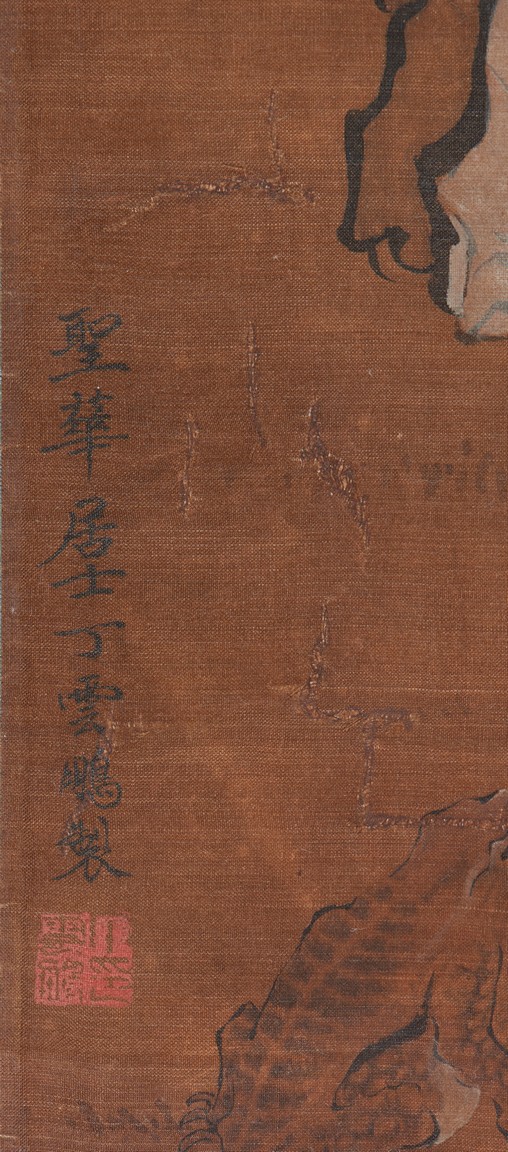 聖華居士丁雲鵬製